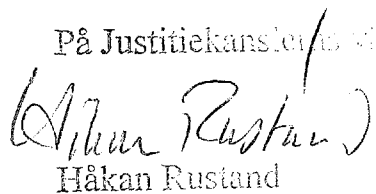 På Justitiekanslerns
Håkan Rustand
Håkan Rustand